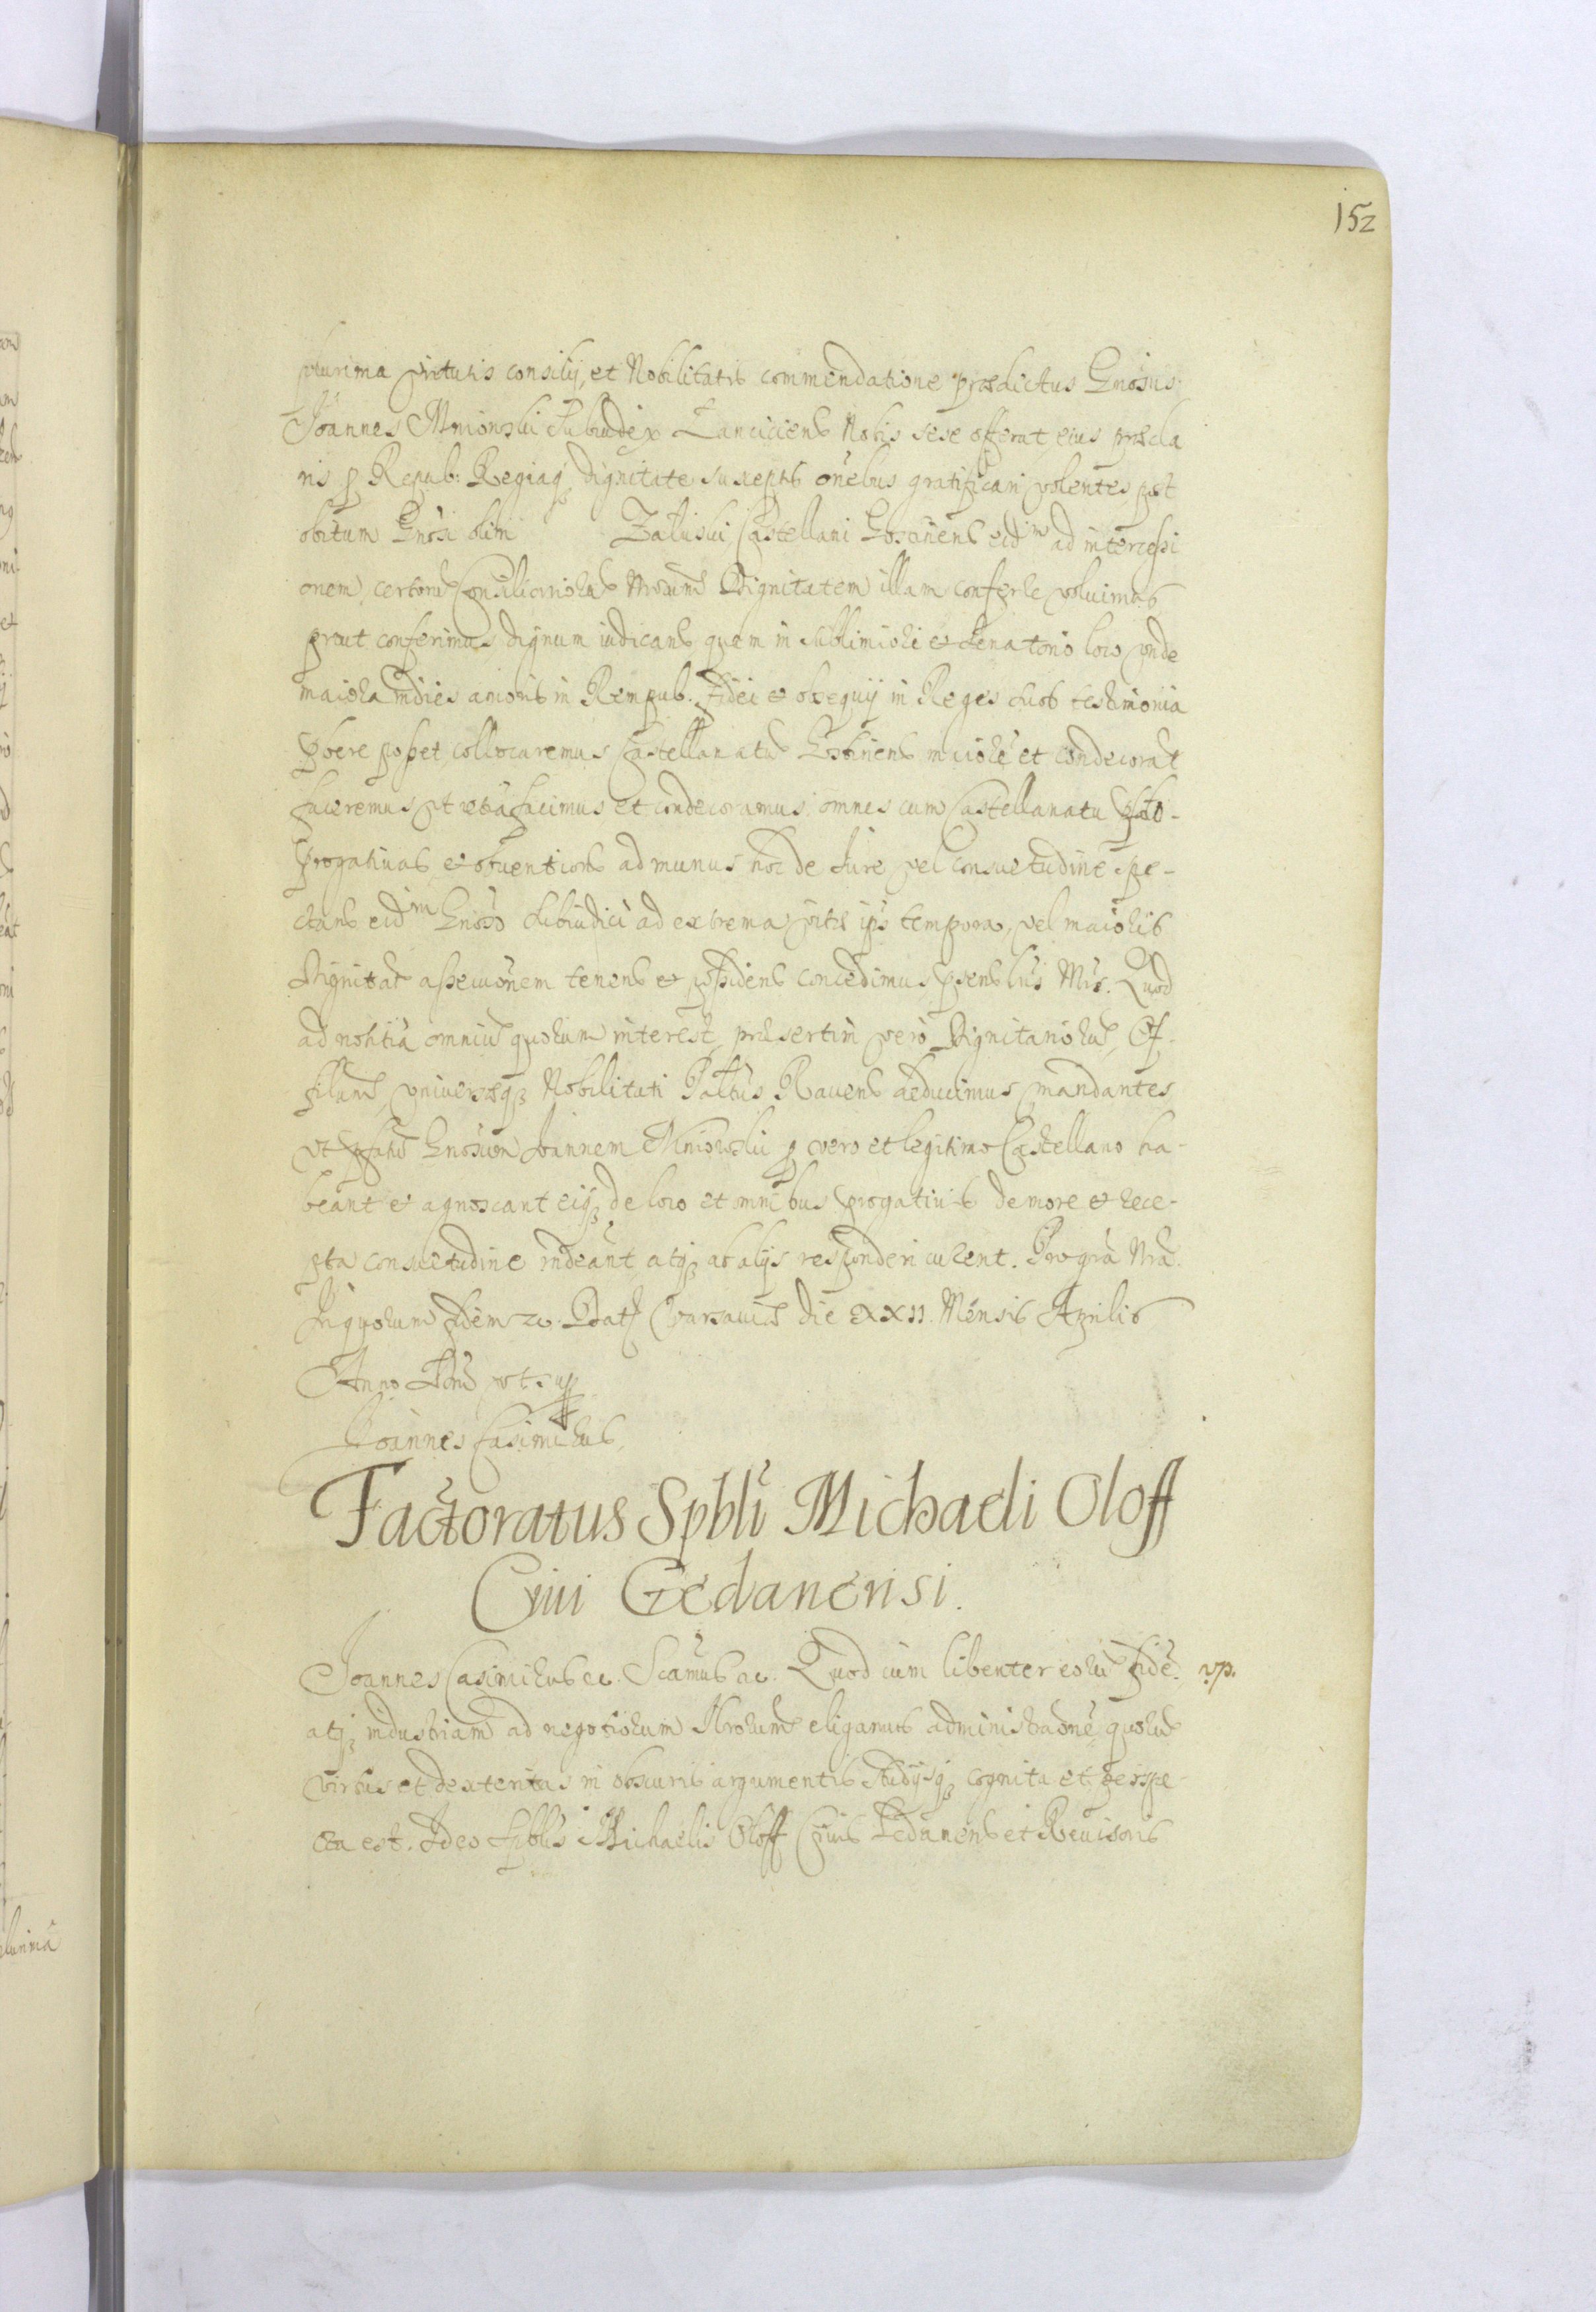 152
plurima virtutis consilij, et Nobilitatis commendatione prædictus Gnosus
Joannes Mnionski Subiudex Lanciciens Nobis sese offerat, eius præcla
ris p Repub: Regiaq dignitate susceptis onebus gratificari volentes, post
obitum Gnosi olim Zaluski Castellani Gostinens eidm ad intercessi
onem certoru Consiliarioru Nrorum Dignitatem illam conferre voluimus
prout conferimus dignum iudicans quem in sublimiori et Senatorio loco vnde
maiora indies amoris in Rempub. fidei et obsequij in Reges suos testimonia
pbere posset collocaremus Castellanatus Gostinens maiore et condecorat
faceremus vt uti facimus et condecoramus omnes cum Castellanatu pfato
progatiuas et obuentiones ad munus hoc de Jure vel consuetudine spe-
ctans eidm Gnoso Subiudici ad extrema vitæ ipis tempora, vel maioris
Dignitat assecuonem tenens et possidens concedimus psens lris Nris. Quod
ad notitia omniu quorum interest, præsertim vero Dignitarioru, Of-
ficlum vniuersæq Nobilitati Paltus Rauens deducimus mandantes
vt pfatu Gnosum Joannem Mnionski p vero et legitimo Castellano ha-
beant et agnoscant eiq de loco et omnibus progatiuis de more et rece-
pta consuetudine respondeant atq ab alijs responderi curent. Pro gra Nra
In quorum fidem etc. Dat Varsauiæ die XXII. Mensis Aprilis
Anno Dni vt sup
Joannes Casimirus
Factoratus Spbli Michaeli Oloff
Ciui Gedanensi.
Joannes Casimirus etc. Scamus etc. Quod cum libenter eoru fide vp.
atq industriam ad negotiorum Nrorum eligamus administraone quoru
virtus et dexteritas in obscuris argumentis studijsq cognita et perspe-
cta est. Ideo Spblis Michaelis Oloff Ciuis Gedanens et Reuisoris